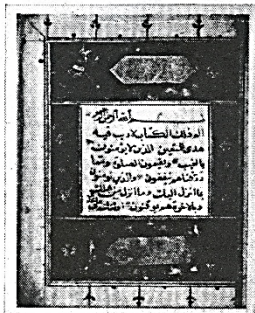 بسم الله الرحمن الرحيم
الم ذلك الكتاب لا ريب فيه
هدى للمتقين الذين يؤمنون
بالغيب ويقيمون الصلوة ومما
رزقناهم ينفقون والذين يؤمنون
بما انزل اليك وما انزل من قبلك
وبالاخرة هم يوقنون اولئك